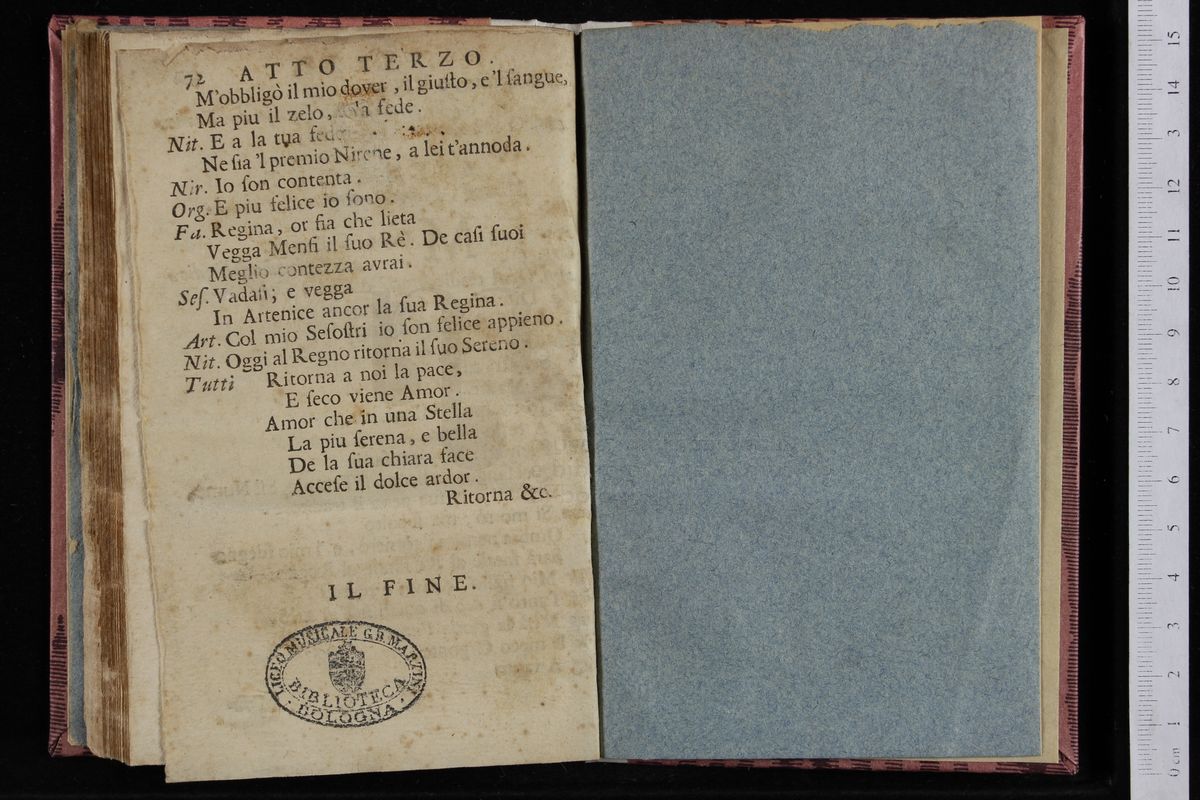 72 ATTO TERZO.
M'obbligò il mio dover, il giuſto, e'l ſangue,
Ma piu il zelo, fede.
Nit. E a la tua
Ne ſia 'l premio Nirene, a lei t'annoda.
Nir. Io ſon contenta.
Org. E piu felice io ſono.
Fa. Regina, or ſia che lieta
Vegga Menfi il ſuo Rè. De caſi ſuoi
Meglio contezza avrai.
Seſ. Vadaſi; e vegga
In Artenice ancor la ſua Regina.
Art. Col mio Seſoſtri io ſon felice appieno.
Nit. Oggi al Regno ritorna il ſuo Sereno.
Tutti Ritorna a noi la pace,
E ſeco viene Amor.
Amor che in una Stella
La piu ſerena, e bella
De la ſua chiara face
Acceſe il dolce ardor.
Ritorna &c.
IL FINE.
LICEO MUSICALE G.B. MARTINI
BIBLIOTECA
· BOLOGNA ·
0 cm 1 2 3 4 5 6 7 8 9 10 11 12 13 14 15